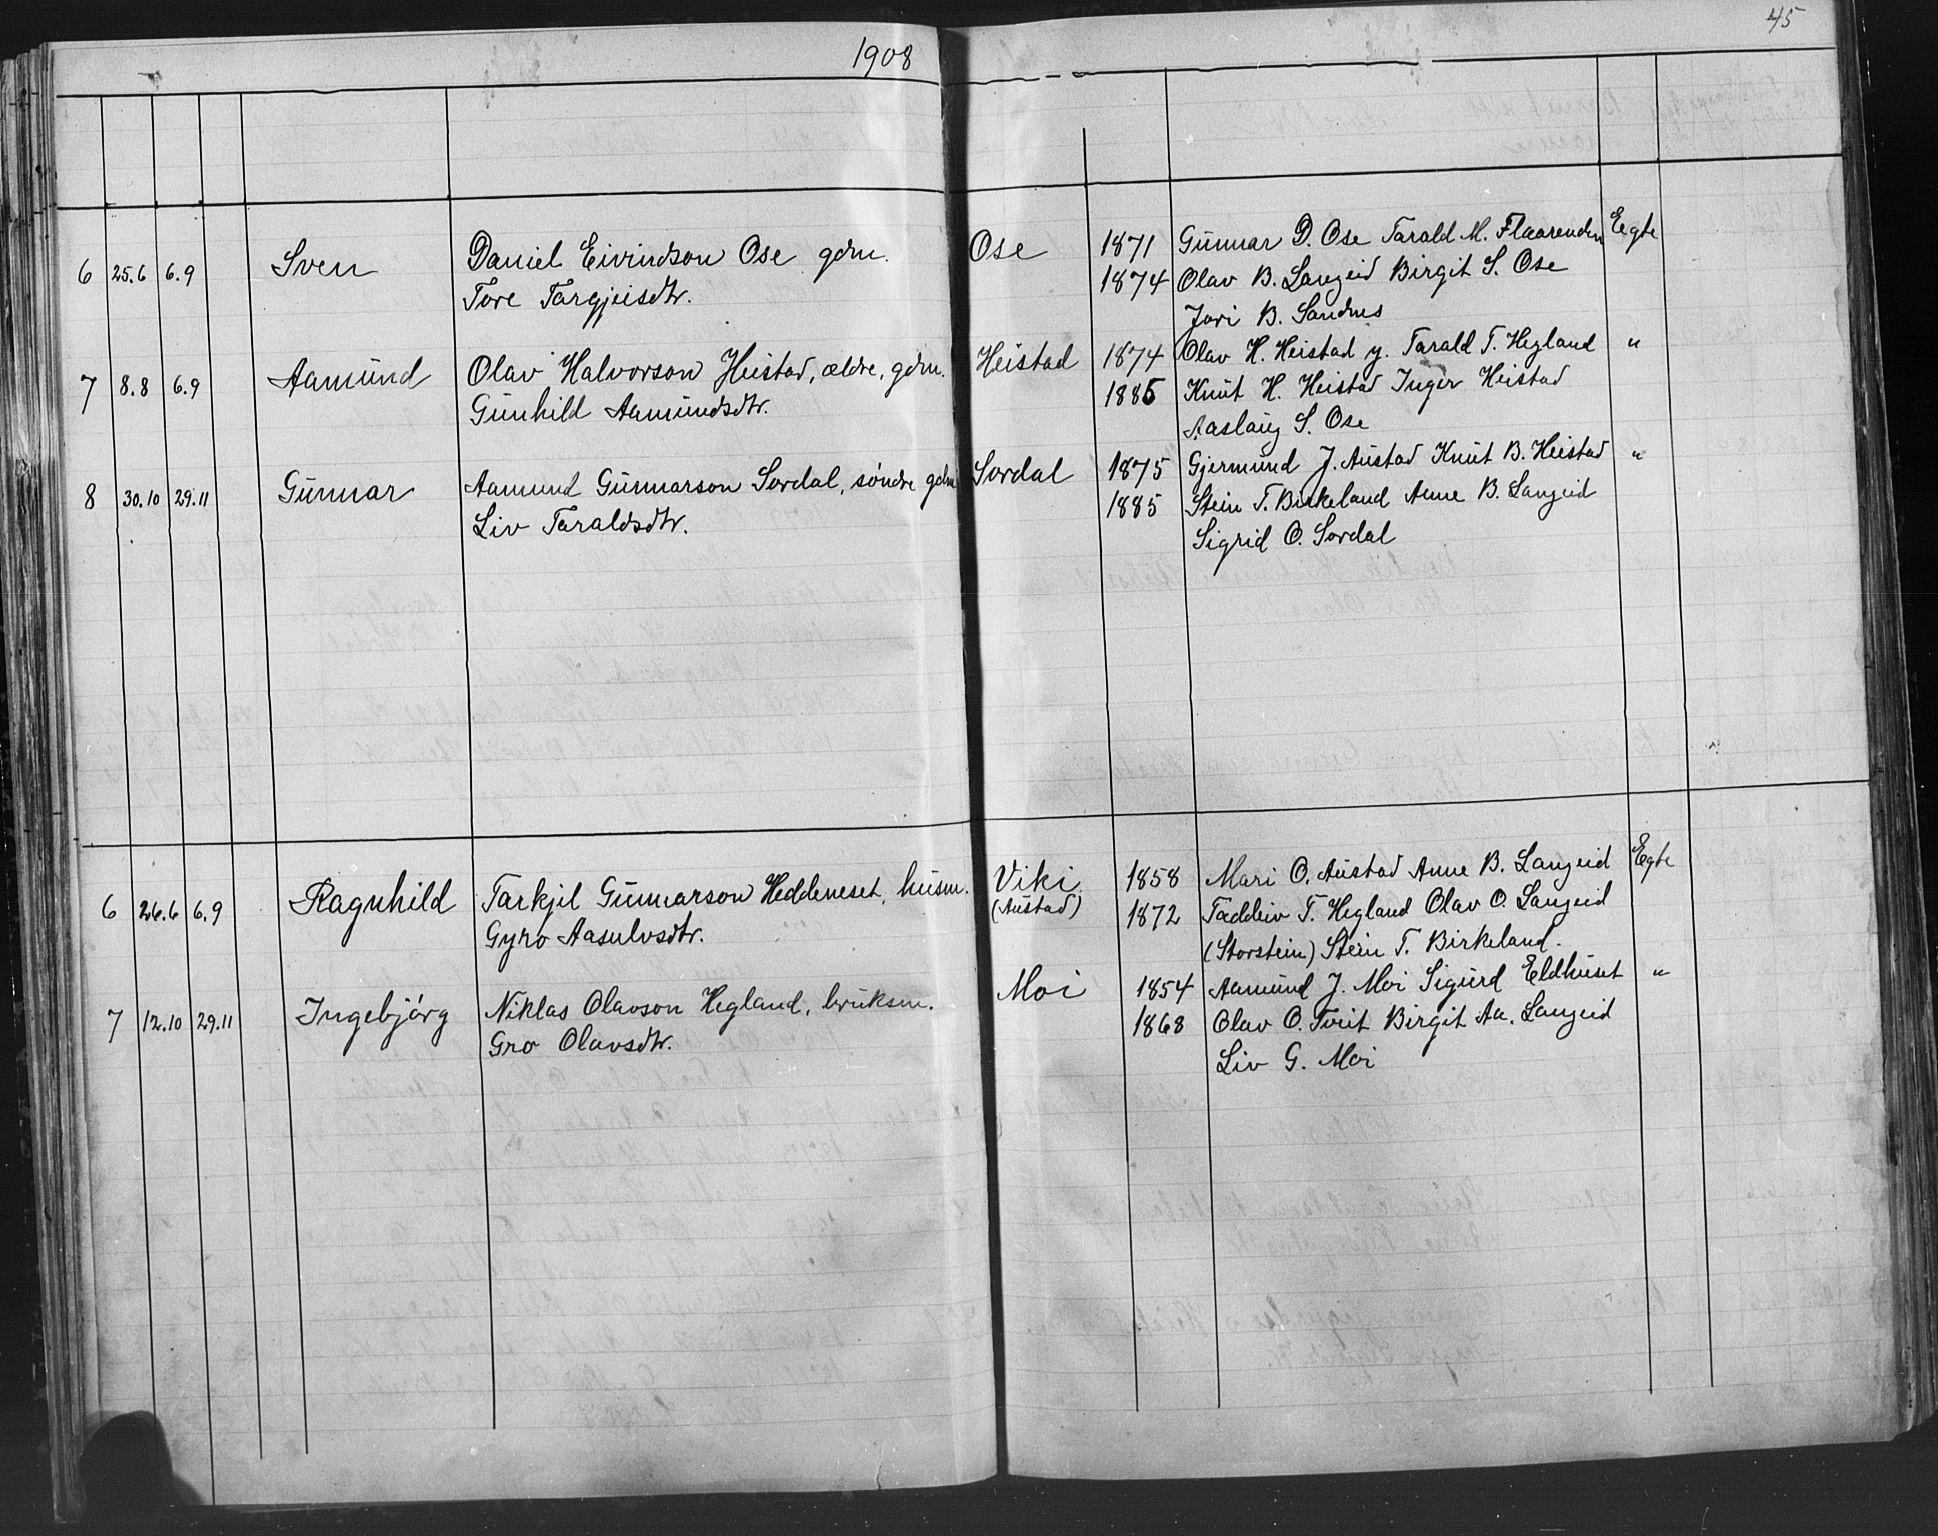 1908
45
6 25.6 6.9 Sven Daniel Eivindson Ose gdm. Ose 1871 Gunnar D. Ose Tarald M. Flaarenden Egte
Tore Targjeisdtr. 1874 Olav B. Langeid Birgit S. Ose
Jori B. Sandnes
7 8.8 6.9 Aamund Olav Halvorson Heistad, ældre, gdm. Heistad 1874 Olav H. Heistad y. Tarald T. Hegland "
Gunhild Aamundsdtr. 1885 Knut H. Heistad Inger Heistad
Aaslaug S. Ose
8 30.10 29.11 Gunnar Aamund Gunnarson Sordal, søndre gdm Sordal 1875 Gjermund J. Austad Knut B. Heistad "
Liv Taraldsdtr. 1885 Stein T. Birkeland Anne B. Langeid
Sigrid O. Sordal
6 26.6 6.9 Ragnhild Tarkjil Gunnarson Heddeneset, husm. Viki 1858 Mari O. Austad Anne B. Langeid Egte
Gyro Aasulvsdtr. (Austad) 1872 Taddeiv T. Hegland Olav O. Langeid
(Storstein) Stein T. Birkeland.
7 12.10 29.11 Ingebjórg Niklas Olavson Hegland, bruksm. Moi 1854 Aamund J. Moi Sigurd Eldhuset "
Gro Olavsdtr. 1868 Olav O. Tveit Birgit Aa. Langeid
Liv G. Moi